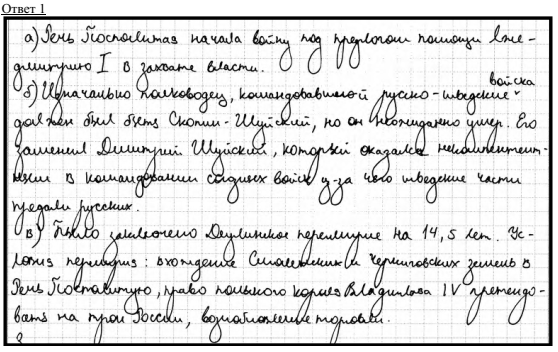 Ответ 1
а) Речь Посполитая начала войну под предлогом помощи Лже-
дмитрию I в захвате власти.
войска
б) Изначально полководец, командовавший русско-шведские
должен был быть Скопин-Шуйский, но он неожиданно умер. Его
заменил Дмитрий Шуйский, который оказался некомпетент-
ным в командовании сводных войск из-за чего шведские части
предали русских.
в) Было заключено Деулинское перемирие на 14,5 лет. Ус-
ловия перемирия: вхождение Смоленских и Черниговских земель в
Речь Посполитую, право польского короля Владислава IV претендо-
вать на трон России, возобновление торговли.